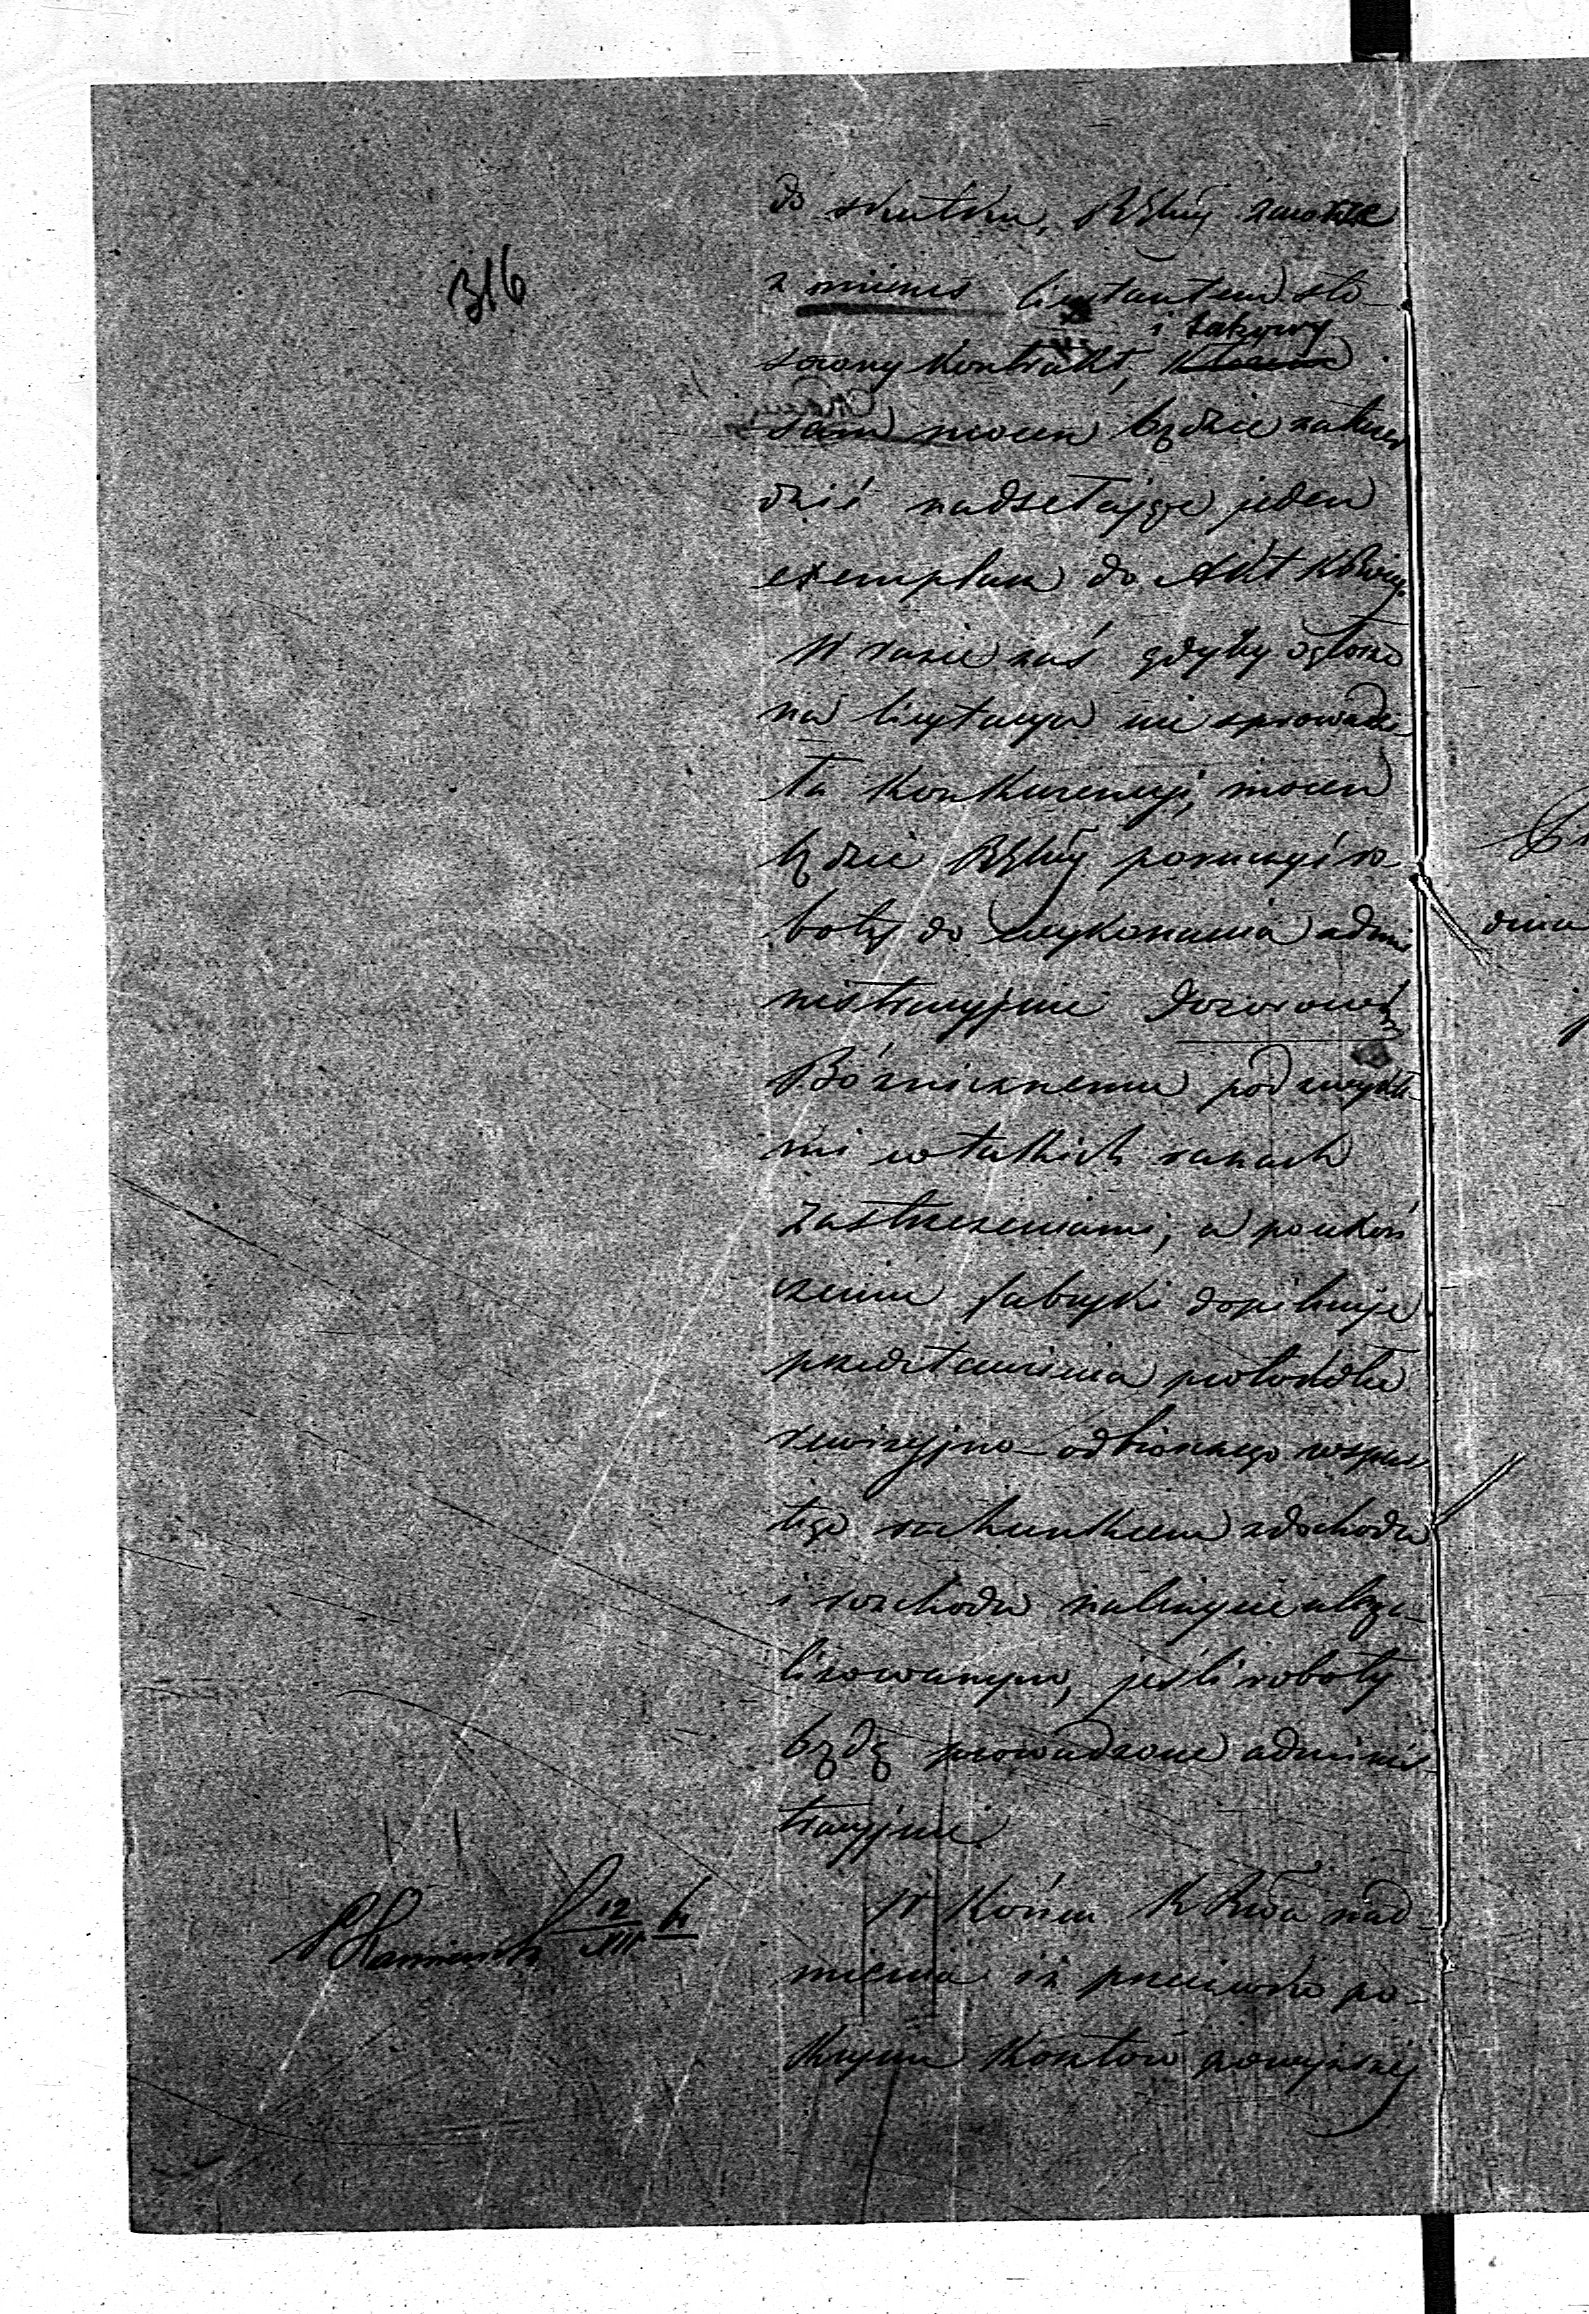 316
do skutku, zawrze
z minus licytantem sto-
i takowy
sowny kontrakt,
sam mocen będzie zatwier
dzić nadsełając jeden
exemplarz do Akt
W razie zaś gdyby ogłoszo
na licytacya nie sprowadzi
ła konkurencyi, mocen
będzie poruczyć ro
boty do wykonania admi
nistracyjnie Dozorowi
Bóżnicznemu pod zwykłe
mi w takich razach
zastrzeżeniami, a po ukoń
czeniu fabryki dopilnuje
przedstawienia protokółu
rewizyjno-odbiorczego wespół
tego rachunkiem z dochodu
i rozchodu należycie
lizowanym, jeśli roboty
będą prowadzone adminis-
tracyjnie
12
W końcu nad-
mienia iż po-
krycia kosztów powyższej